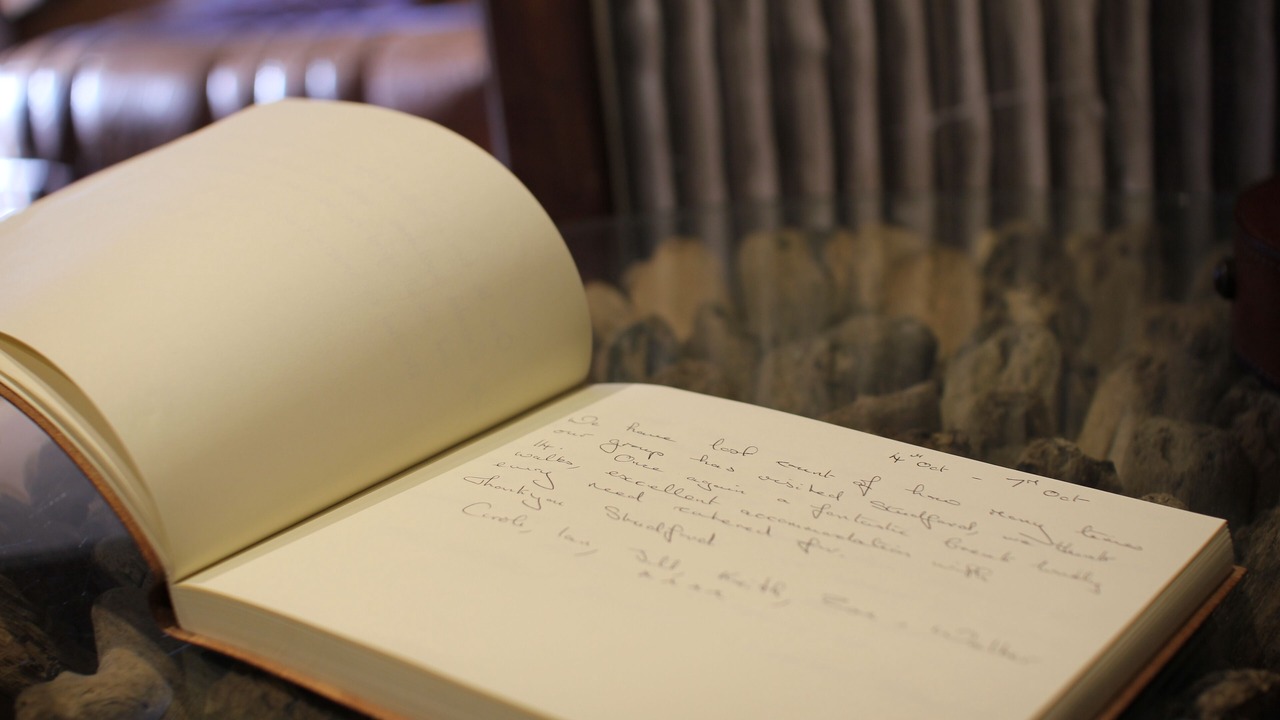 4th Oct - 7th Oct
We have lost count of how many times
our group has visited Studford, we think
14. Once again a fantastic break lovely
walks, excellent accommodation with
every need catered for.
Thankyou Studford
Carole, Ian, Jill, Keith,
xxxx